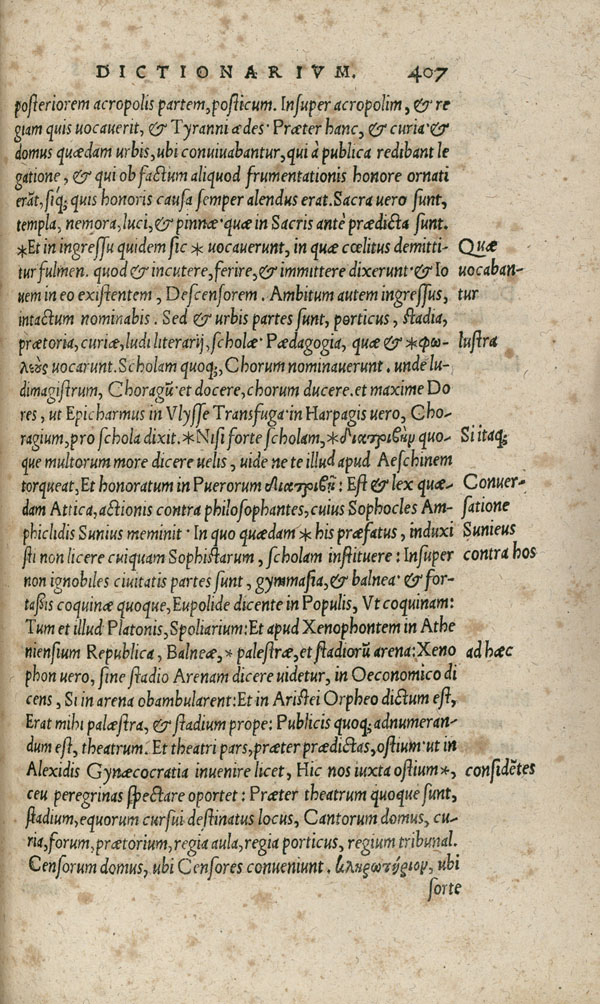 DICTIONARIVM. 407
posteriorem acropolis partem, posticum. Insuper acropolim, & re
giam quis uocauerit, & Tyranni ædes· Præter hanc, & curia· &
domus quædam urbis, ubi conuiuabantur, qui à publica redibant le
gatione, & qui ob factum aliquod frumentationis honore ornati
erāt, siq́; quis honoris causa semper alendus erat. Sacra uero sunt,
templa, nemora, luci, & pinnæ· quæ in Sacris antè prædicta sunt.
*Et in ingressu quidem sic * uocauerunt, in quæ cœlitus demitti- Quæ
tur fulmen. quod & incutere, ferire, & immittere dixerunt· & Io uocaban-
uem in eo existentem, Descensorem. Ambitum autem ingressus, tur
intactum nominabis. Sed & urbis partes sunt, porticus, stadia,
prætoria, curiæ, ludi literarij, scholæ· Pædagogia, quæ & *φω- lustra
λεοὺς uocarunt. Scholam quoq;, Chorum nominauerunt. unde lu-
dimagistrum, Choragū· et docere, chorum ducere. et maxime Do
res, ut Epicharmus in Vlysse Transfuga· in Harpagis uero, Cho-
ragium, pro schola dixit. *Nisi forte scholam, *διατριβὴν quo- Si itaq;
que multorum more dicere uelis, uide ne te illud apud Aeschinem
torqueat, Et honoratum in Puerorum διατριβῇ: Est & lex quæ- Conuer-
dam Attica, actionis contra philosophantes, cuius Sophocles Am- satione
phiclidis Sunius meminit· In quo quædam * his præfatus, induxi Sunieus
sti non licere cuiquam Sophistarum, scholam instituere: Insuper contra hos
non ignobiles ciuitatis partes sunt, gymnasia, & balnea· & for-
tassis coquinæ quoque, Eupolide dicente in Populis, Vt coquinam:
Tum et illud Platonis, Spoliarium: Et apud Xenophontem in Athe
niensium Republica, Balneæ, * palestræ, et stadiorū arena: Xeno ad hæc
phon uero, sine stadio Arenam dicere uidetur, in Oeconomico di
cens, Si in arena obambularent: Et in Aristei Orpheo dictum est,
Erat mihi palæstra, & stadium prope: Publicis quoq; adnumeran-
dum est, theatrum. Et theatri pars, præter prædictas, ostium· ut in
Alexidis Gynæcocratia inuenire licet, Hic nos iuxta ostium*, considētes
ceu peregrinas spectare oportet: Præter theatrum quoque sunt,
stadium, equorum cursui destinatus locus, Cantorum domus, cu-
ria, forum, prætorium, regia aula, regia porticus, regium tribunal.
Censorum domus, ubi Censores conueniunt. κληρωτήριον, ubi
sorte